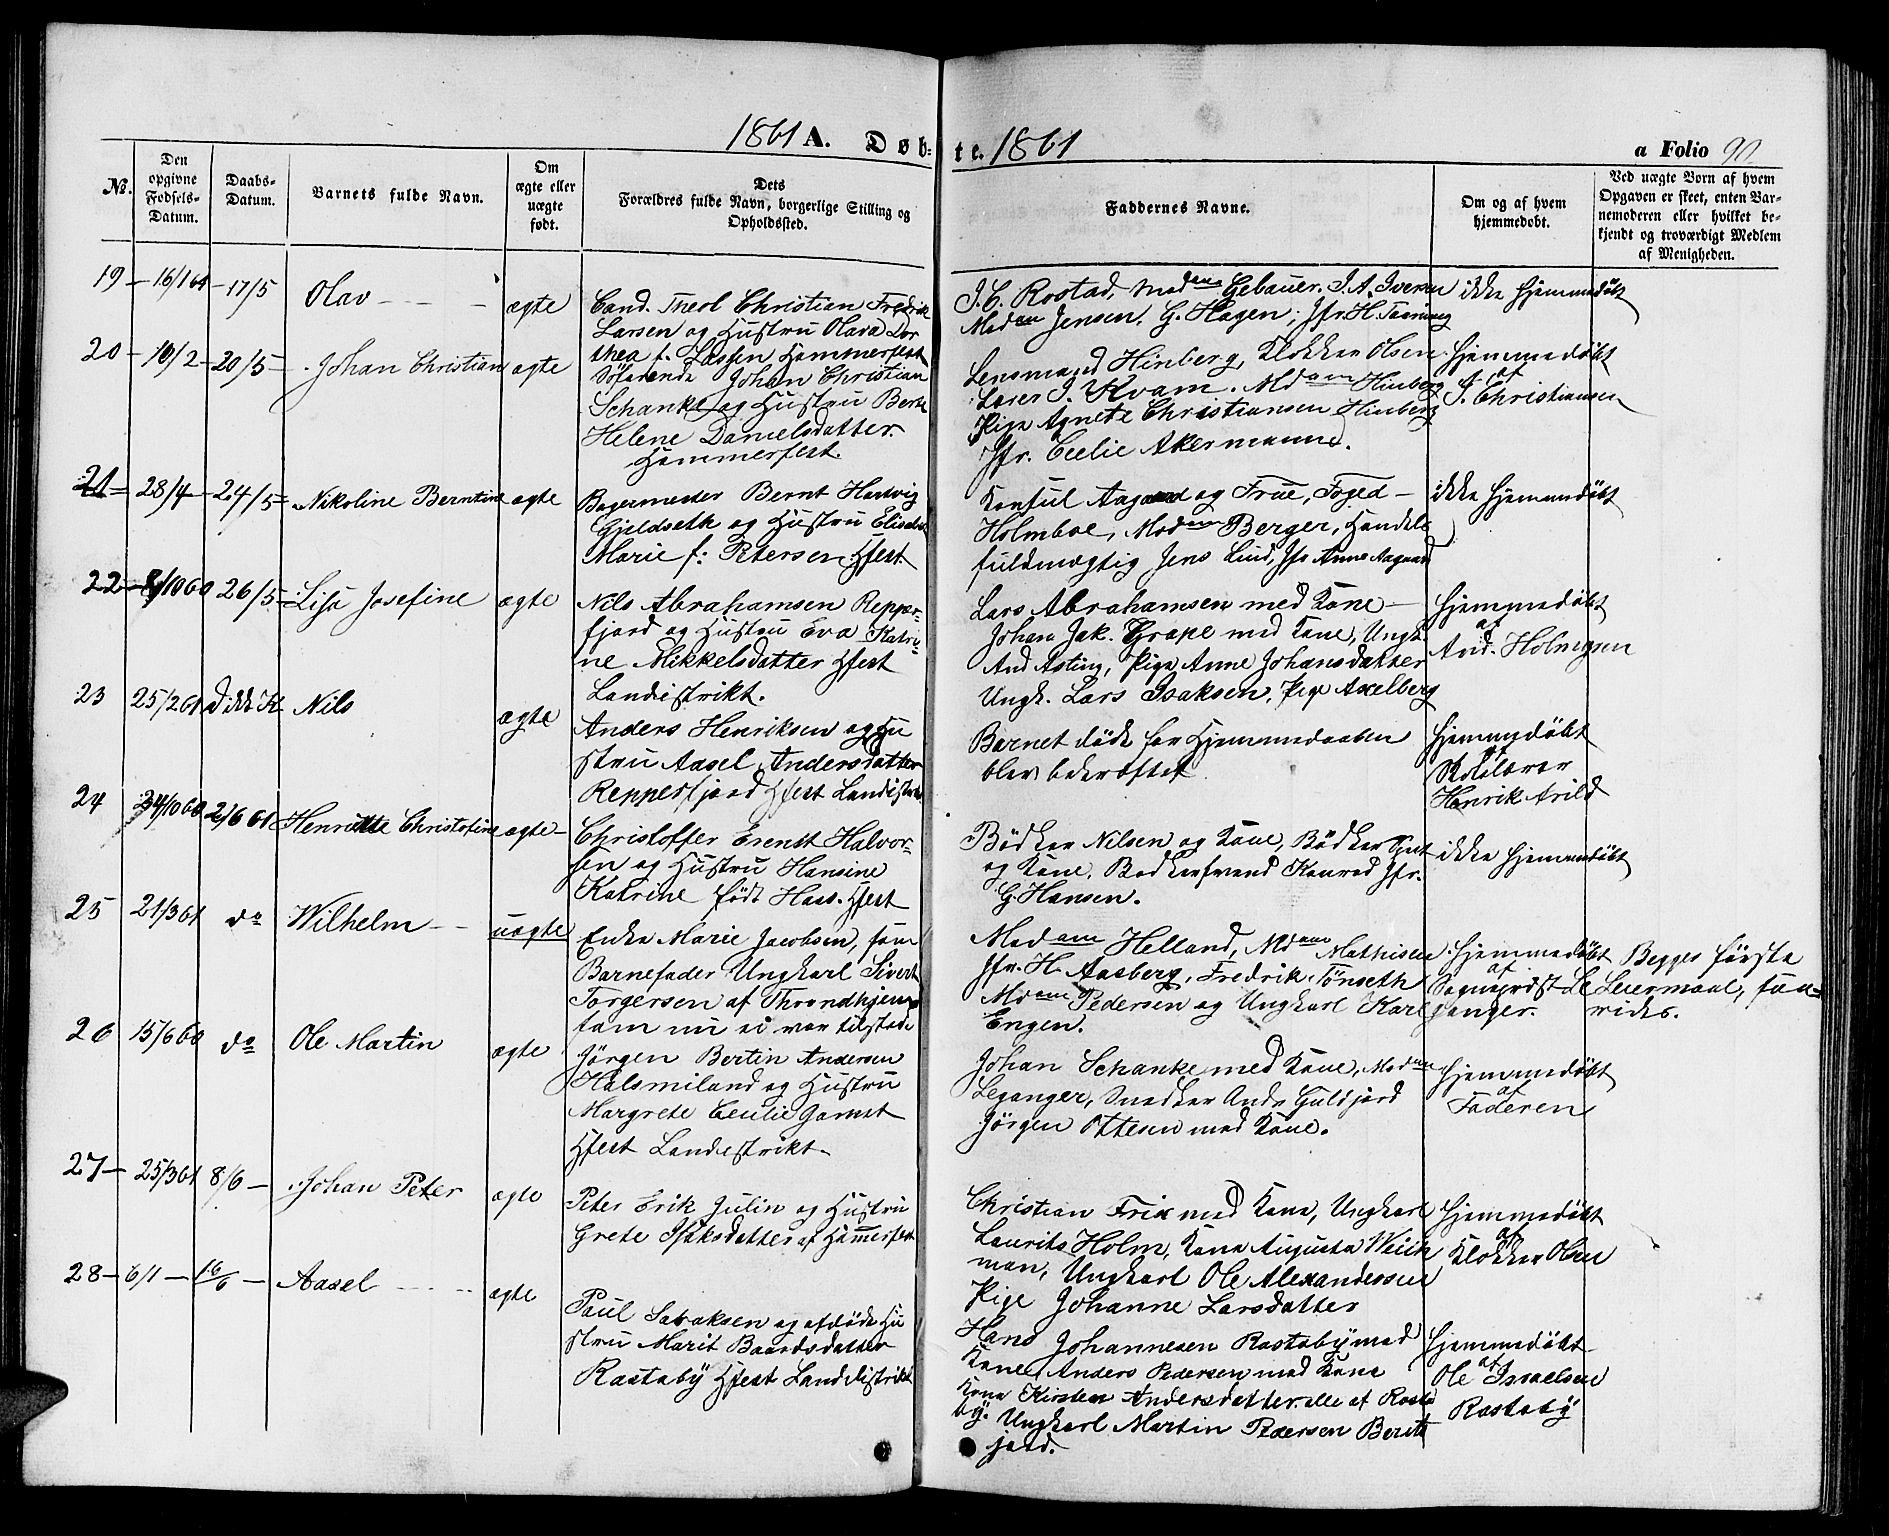 1861 A. Døb-
te. 1861
a Folio 90
No.
Den opgivne Fødsels-Datum.
Daabs-Datum.
Barnets fulde Navn.
Om ægte eller uægte født.
Dets Forældres fulde Navn, borgerlige Stilling og Opholdssted.
Faddernes Navne.
Om og af hvem hjemmedøbt.
Ved uægte Børn af hvem Opgaven er skeet, enten Barnemoderen eller hvilket bekjendt og troværdigt Medlem af Menigheden.
19 – 16/1 61 – 17/5 Olav – – – ægte
Cand. Theol Christian Fredrik
Larsen og Hustru Olava Dor
thea f. Lassen Hammerfest
J. C. Rostad, Madam Gebauer. J. A. Iversen
Madam Jensen. G. Hagen; Jfr. H.
ikke hjemmedøbt
20 – 10/2 – 20/5 – Johan Christian ægte
Søfarende Johan Christian
Schanke og Hustru Berte
Helene Danielsdatter.
Hammerfest.
Lensmand Hinberg, Klokker Olsen
Lærer J. Kvam. Madam Hinberg
Pige Agnete Christiansen Hinberg
Jfr. Cecilie Akermann.
hjemmedøbt
af
J. Christiansen
21 – 28/4 – 24/5 – Nikoline Berntine ægte
Bagermester Bernt Hartvig
Gjeldseth og Hustru Elisabet
Marie f: Petersen Hfest
Konsul Aagaard og Frue, Foged –
Holmboe, Madam Berger, Handels
fuldmægtig Jens Lund, Jfr Anne Aagaard
ikke hjemmedøbt
22 – 8/10 60 26/5 – Lisa Josefine ægte
Nils Abrahamsen Repper-
fjord og Hustru Eva Katri-
ne Mikkelsdatter Hfest
Landistrikt.
Lars Abrahamsen med Kone –
Johan Jak. Grape med Kone, Ungk.
And Asting, Pige Anne Johansdatter
Ungk. Lars Isaksen. Pige Axelberg
hjemmedøbt
af
Arid. Holmgsen
23 25/2 61 D ikke K Nils ægte
Anders Henriksen og Hu
stru Aasel Andersdatter
Repperfjord Hfest Landistrikt
Barnet døde før Hjemmedaaben
blev bekræftet
hjemmedøbt
af
Skolelærer
Henrik Arild
24 24/10 60 2/6 61 Henriette Christofine ægte –
Christoffer Erenst Halvor-
sen og Hustru Hansine
Katrine født Haas. Hfest
Bødker Nilsen og Kone, Bødker
og Kone. Bødkersvend Konrad Jfr.
G Hansen.
ikke hjemmedøbt
25 21/3 61 do Wilhelm – – uægte
Enke Marie Jacobsen, som
Barnefader Ungkarl Sivert
Torgersen af Throndhjem
som nu ei var tilstede
Madam Helland, Madam Mathisen
Jfr. H. Aasberg, Fredrik Tønseth
Madam Pedersen og Ungkarl Karl
Engen.
hjemmedøbt
af
Sogneprest Le
ganger.
Begges første
Leiermaal, san-
vides.
26 15/6 60 do Ole Martin ægte
Jørgen Bertin Andersen
Halsmiland og Hustru
Margrete Cecilie Garnst
Hfest Landistrikt.
Johan Schanke med Kone, Madam
Leganger, Snedker Andr Guldjord
Jørgen Ottesen med Kone.
hjemmedøbt
af
Faderen
27 – 25/3 61 8/6 – Johan Peter ægte
Peter Erik Julin og Hustru
Grete Isaksdatter af Hamerfest
Christian Friix med Kone, Ungkarl
Laurits Holm, Kone Augusta Weich
man, Ungkarl Ole Alexandersen
Pige Johanne Larsdatter
hjemmedøbt
af
Klokker Olsen
28 – 6/1 – 16/6 – Aasel – – – ægte
Paul Sabaksen og afdøde Hu
stru Marit Baardsdatter
Rastaby Hfest Landistrikt
Hans Johannesen Rastaby med
Kone Anders Pedersen med Kone
Kone Kirsten Andersdatter alle af Rasta
by. Ungkarl Martin Pedersen Berits
jord.
hjemmedøbt
af
Ole Israelsen
Rastaby